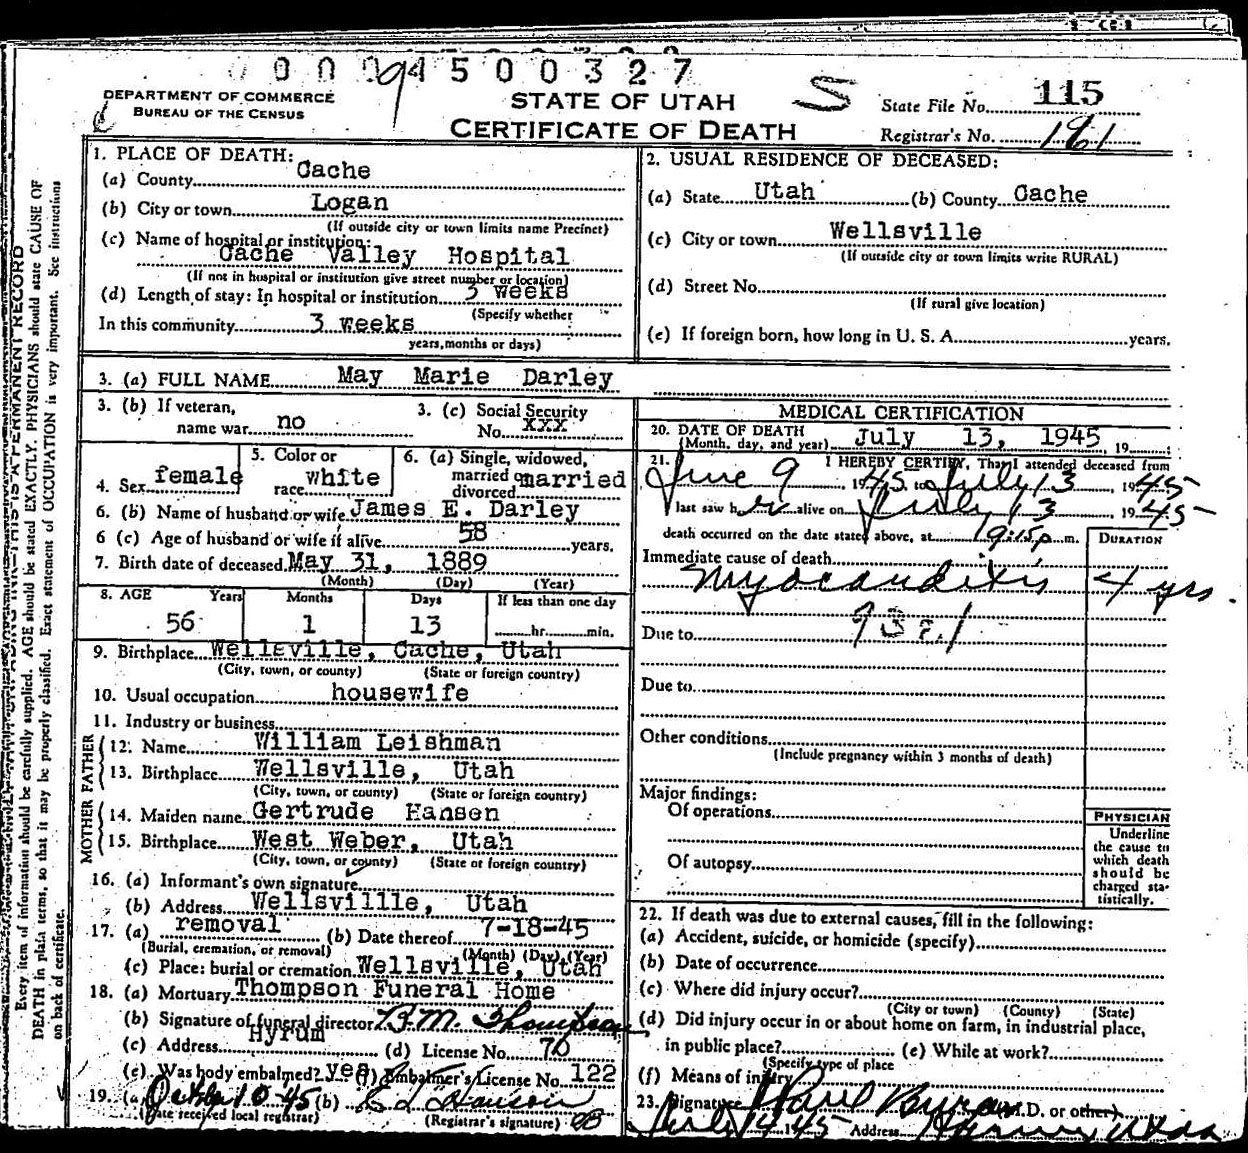 00094500327
DEPARTMENT OF COMMERCE
BUREAU OF THE CENSUS
STATE OF UTAH
CERTIFICATE OF DEATH
S
State File No. 115
Registrar's No. 181
1. PLACE OF DEATH:
(a) County Cache
(b) City or town Logan
(If outside city or town limits name Precinct)
(c) Name of hospital or institution:
Cache Valley Hospital
(If not in hospital or institution give street number or location)
(d) Length of stay: In hospital or institution 3 weeks
(Specify whether
In this community 3 weeks
years, months or days)
2. USUAL RESIDENCE OF DECEASED:
(a) State Utah (b) County Cache
(c) City or town Wellsville
(If outside city or town limits write RURAL)
(d) Street No.
(If rural give location)
(e) If foreign born, how long in U. S. A. years.
3. (a) FULL NAME May Marie Darley
3. (b) If veteran, name war no
3. (c) Social Security No. XXX
4. Sex female
5. Color or race white
6. (a) Single, widowed, married or divorced married
6. (b) Name of husband or wife James E. Darley
6 (c) Age of husband or wife if alive 58 years.
7. Birth date of deceased May 31, 1889
(Month) (Day) (Year)
8. AGE Years Months Days If less than one day
56 1 13 hr. min.
9. Birthplace Wellsville, Cache, Utah
(City, town, or county) (State or foreign country)
10. Usual occupation housewife
11. Industry or business
FATHER
12. Name William Leishman
13. Birthplace Wellsville, Utah
(City, town, or county) (State or foreign country)
MOTHER
14. Maiden name Gertrude Hansen
15. Birthplace West Weber, Utah
(City, town, or county) (State or foreign country)
16. (a) Informant's own signature
(b) Address Wellsvillle, Utah
17. (a) removal (b) Date thereof 7-18-45
(Burial, cremation, or removal) (Month) (Day) (Year)
(c) Place: burial or cremation Wellsville, Utah
18. (a) Mortuary Thompson Funeral Home
(b) Signature of funeral director Thompson
(c) Address Hyrum (d) License No. 76
(e) Was body embalmed? yes (f) Embalmer's License No. 122
19. (a) (b)
(Date received local registrar) (Registrar's signature)
MEDICAL CERTIFICATION
20. DATE OF DEATH
(Month, day, and year) July 13, 1945, 19
21. I HEREBY CERTIFY, That I attended deceased from
June 9 1945 to July 13, 1945
I last saw her alive on July 13, 1945
death occurred on the date stated above, at 9:15 p m.
DURATION
Immediate cause of death
Myocarditis 4 yrs.
Due to
Due to
Other conditions
(Include pregnancy within 3 months of death)
Major findings:
Of operations
Of autopsy
PHYSICIAN
Underline
the cause to
which death
should be
charged sta-
tistically.
22. If death was due to external causes, fill in the following:
(a) Accident, suicide, or homicide (specify)
(b) Date of occurrence
(c) Where did injury occur?
(City or town) (County) (State)
(d) Did injury occur in or about home on farm, in industrial place,
in public place? (e) While at work?
(Specify type of place
(f) Means of injury
23. Signature (M.D. or other)
July 14 1945 Address
Every item of information should be carefully supplied. AGE should be stated EXACTLY. PHYSICIANS should state CAUSE OF
DEATH in plain terms, so that it may be properly classified. Exact statement of OCCUPATION is very important. See instructions
on back of certificate.